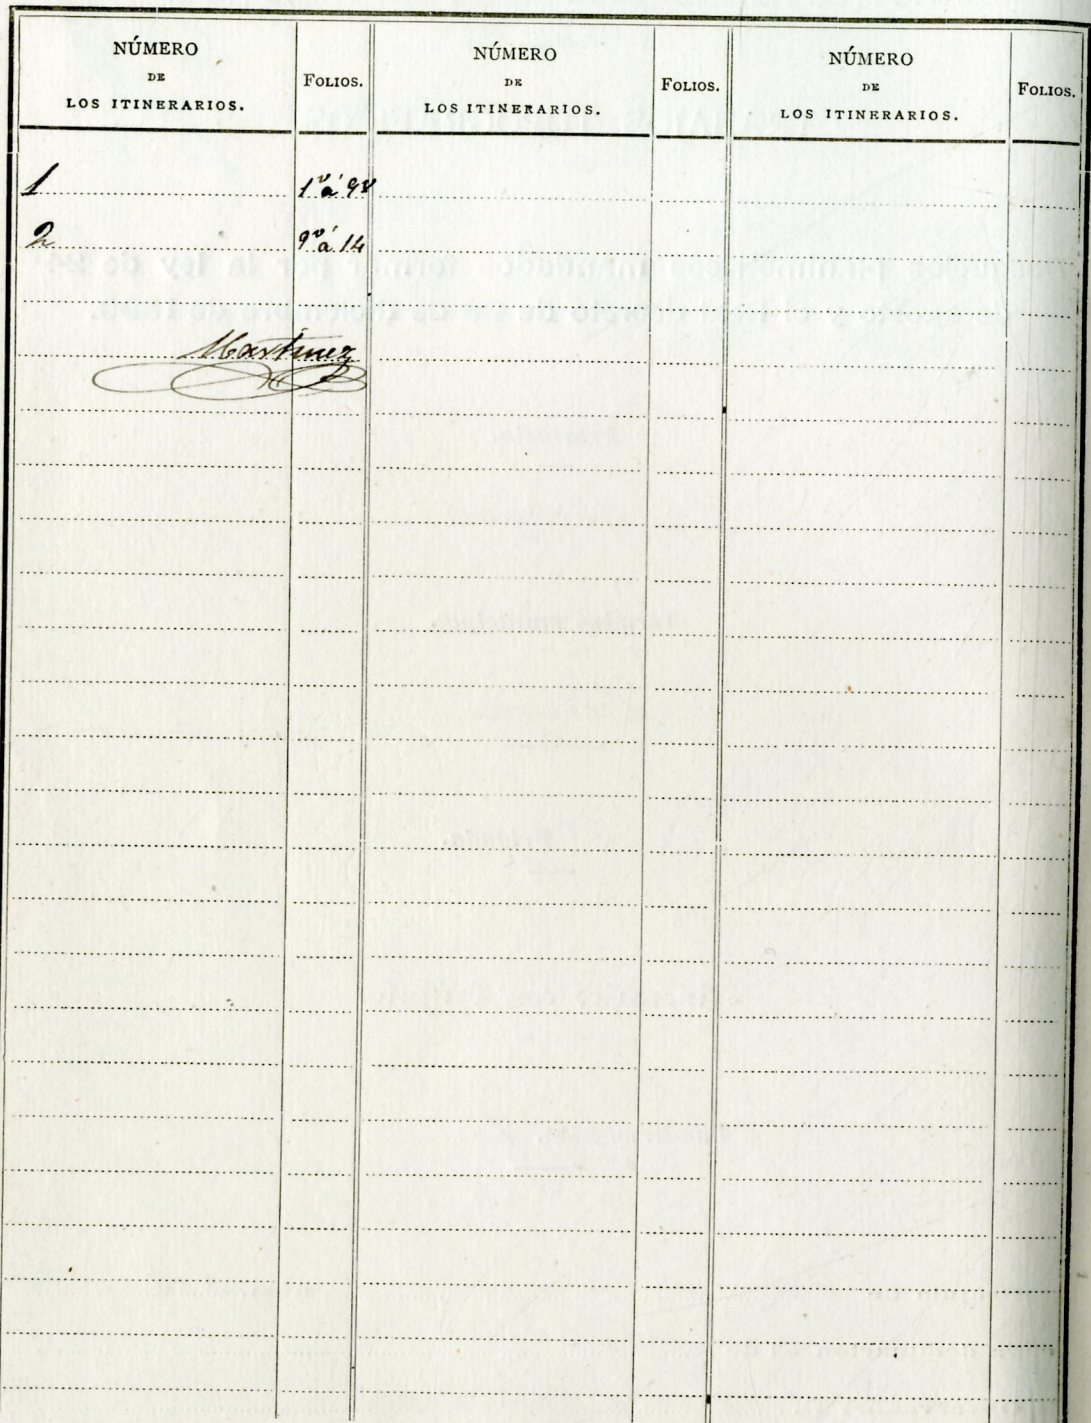 NÚMERO
DE
LOS ITINERARIOS.
FOLIOS.
NÚMERO
DE
LOS ITINERARIOS.
FOLIOS.
NÚMERO
DE
LOS ITINERARIOS.
FOLIOS.
1 1ᵛ á 9ᵛ
2 9ᵛ á 14
Martinez